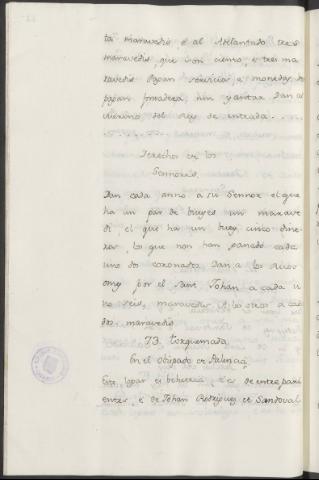 ta maravedis, e al Adelantado tres
maravedis, que son ciento, e tres ma
ravedis. Pagan servicios e monedas, no
pagan fonsadera, nin yantar. Dan al
Merino del Rey de entrada.
Derechos de los
Sennores.
Dan cada anno a su Sennor el que
ha un par de bueyes un marave
di, el que ha un buey cinco dine
ros, lo que non han ganado cada
uno dos coronados. Dan a los
por el Sant Johan a cada u
no seis maravedis, a los otros a ca
dos maravedis
73. Torquemada
En el Obispado de Palencia
Este logar es behetria, e es de entre parí
entes, e de Johan Rodriguez de Sandoval